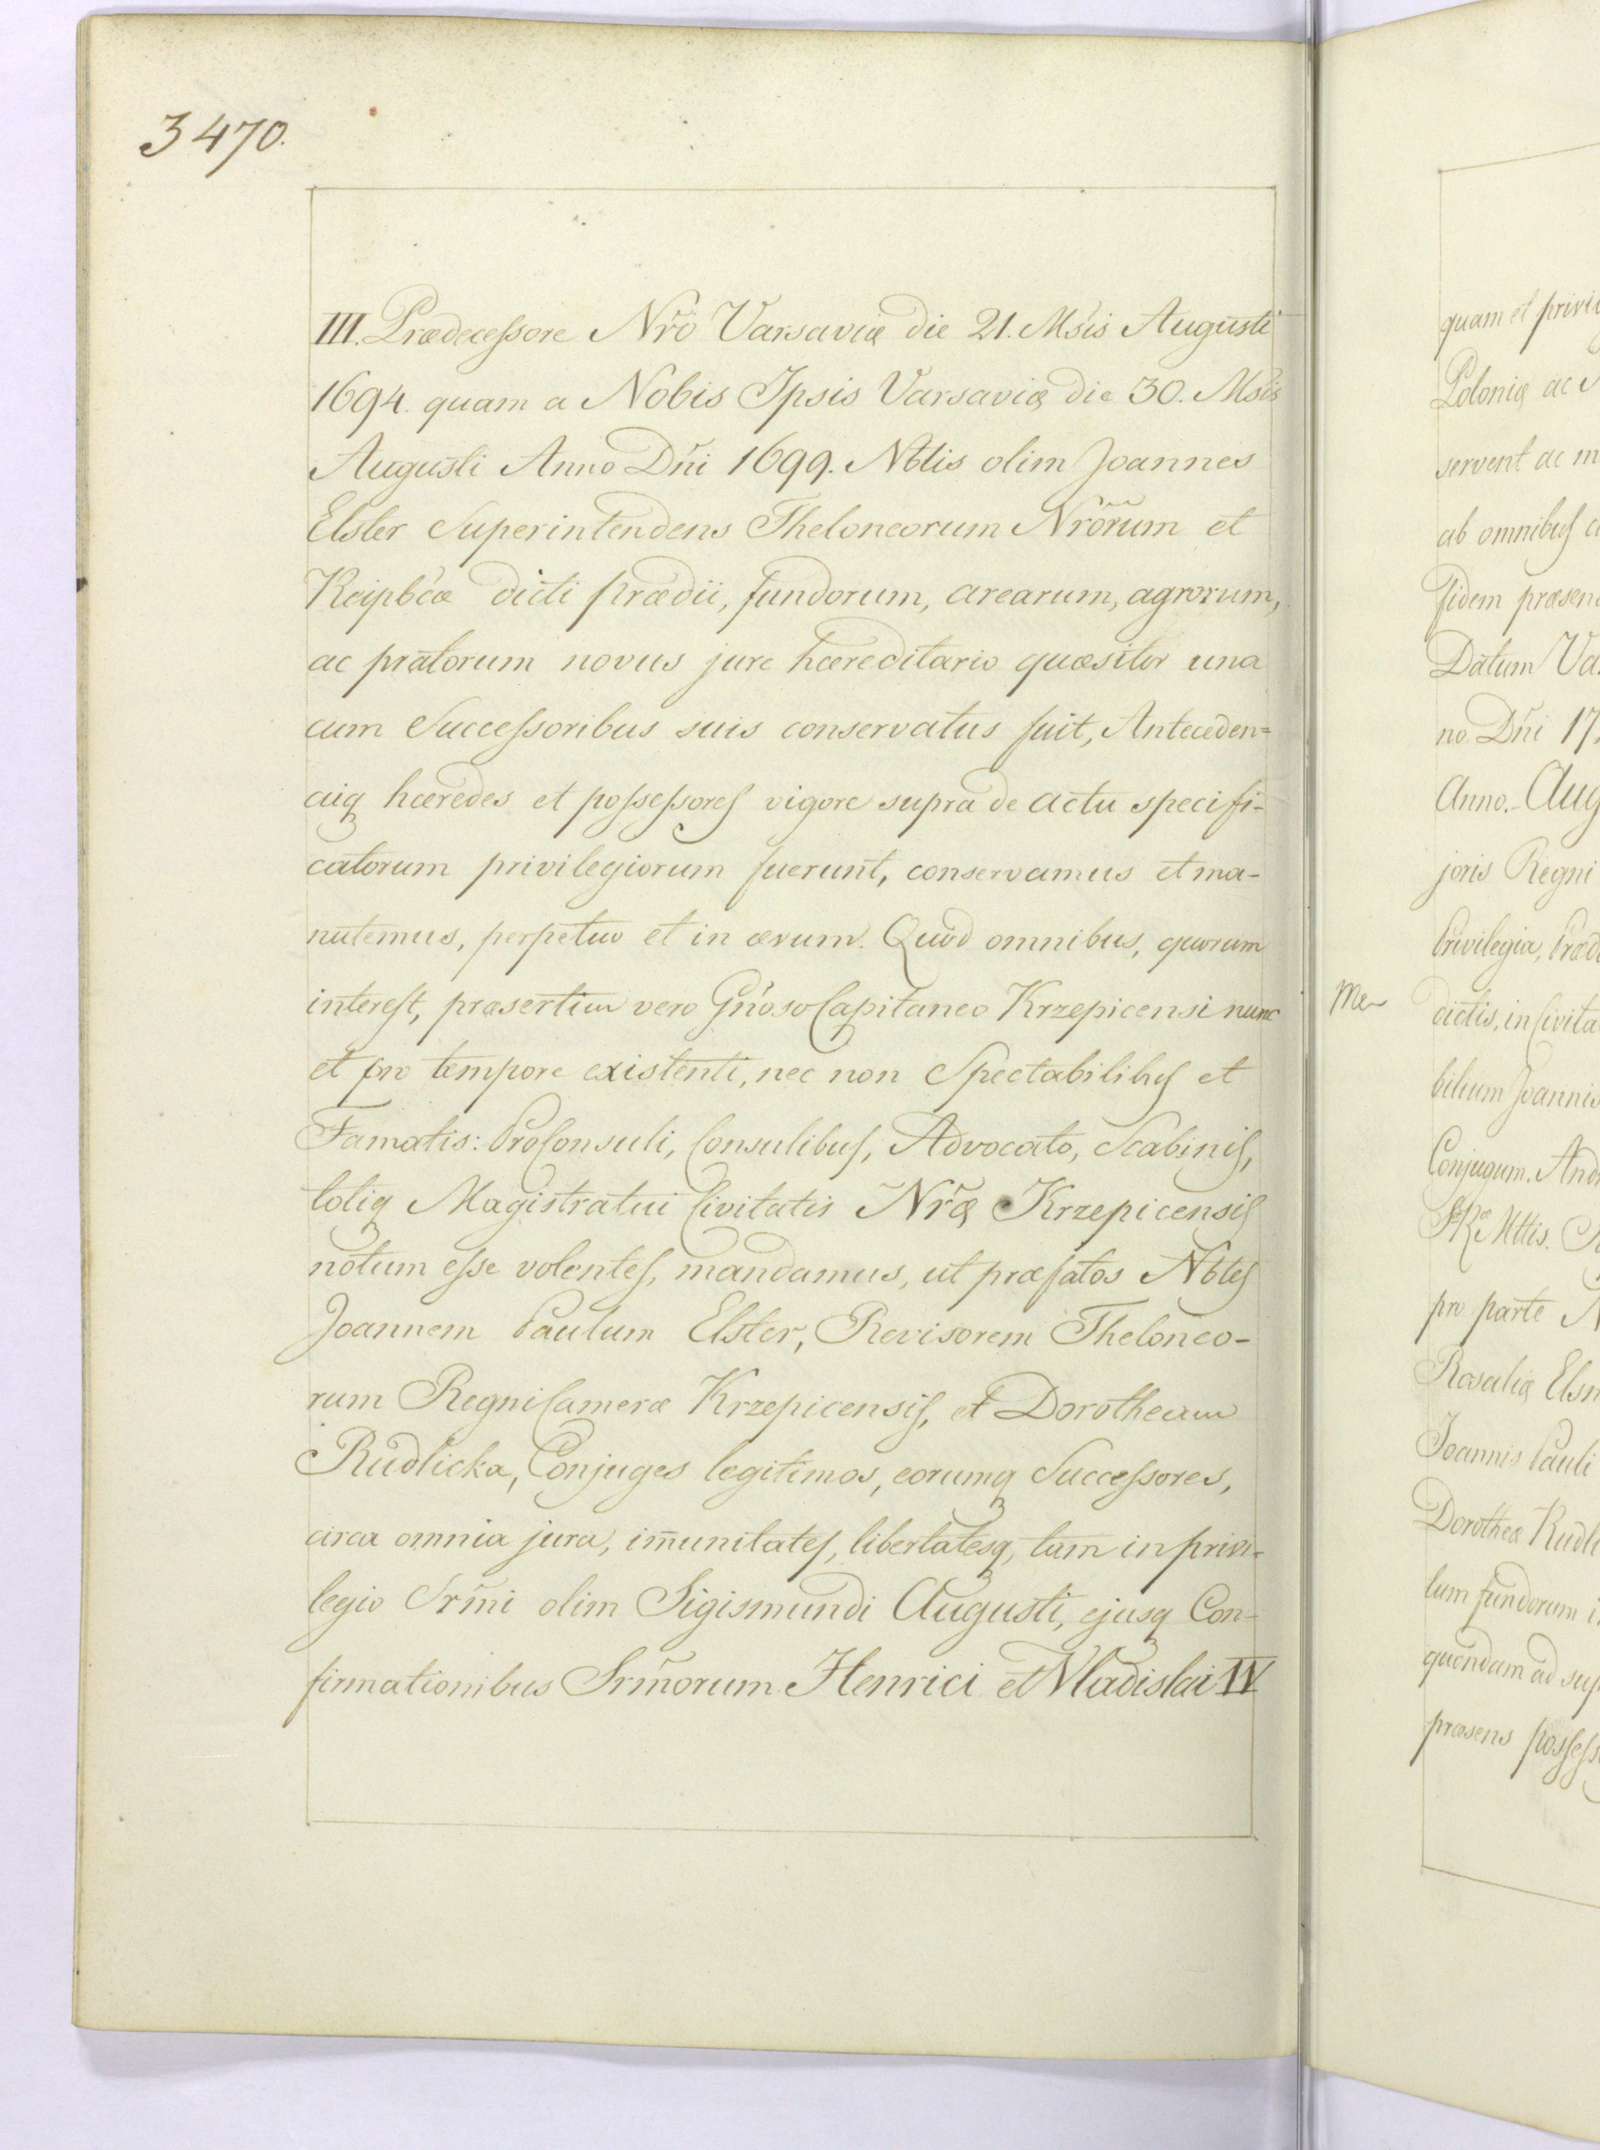 3470.
III. Prædecessore Nrõ Varsaviæ die 21. Msis Augusti
1694. quam a Nobis Ipsis Varsaviæ die 30. Msis
Augusti Anno Dni 1699. Nbtis olim Joannes
Elsler Superintendens Theloneorum Nrõrum et
Reipbcæ dicti prædii, fundorum, arearum, agrorum,
ac pratorum novus jure hæreditario quæsitor una
cum Successoribus suis conservatus fuit, Anteceden=
ciq hæredes et possessores vigore supra de actu specifi-
catorum privilegiorum fuerunt, conservamus et ma-
nutemus, perpetuo et in ævum. Quod omnibus, quorum
interest, præsertim vero Gnoso Capitaneo Krzepicensi nunc
et pro tempore existenti, nec non Spectabilibus et
Famatis: ProConsuli, Consulibus, Advocato, Scabinis,
totiq Magistratui Civitatis Nræ Krzepicensis
notum esse volentes, mandamus, ut præfatos Nbtes
Joannem Paulum Elsler, Revisorem Theloneo-
rum Regni Cameræ Krzepicensis, et Dorotheam
Rudlicka, Conjuges legitimos, eorumq Successores,
circa omnia jura, im̃unitates, libertatesq, tam in privi-
legio Srmi olim Sigismundi Augusti, ejusq Con-
firmationibus Srmorum Henrici et Vladislai IV
quam et privi
Poloniæ ac
servent ac m
ab omnibus
Fidem præsen
Datum Va
no Dni 17
Anno. Aug
joris Regni
Privilegia, Præd
Me
dictis, in Civita
bilium Joannis
Conjugum. And
pro parte N
Rosaliæ Elsn
Joannis Pauli
Dorotheæ Rudl
lum fundorum i
quendam ad sup
præsens possess